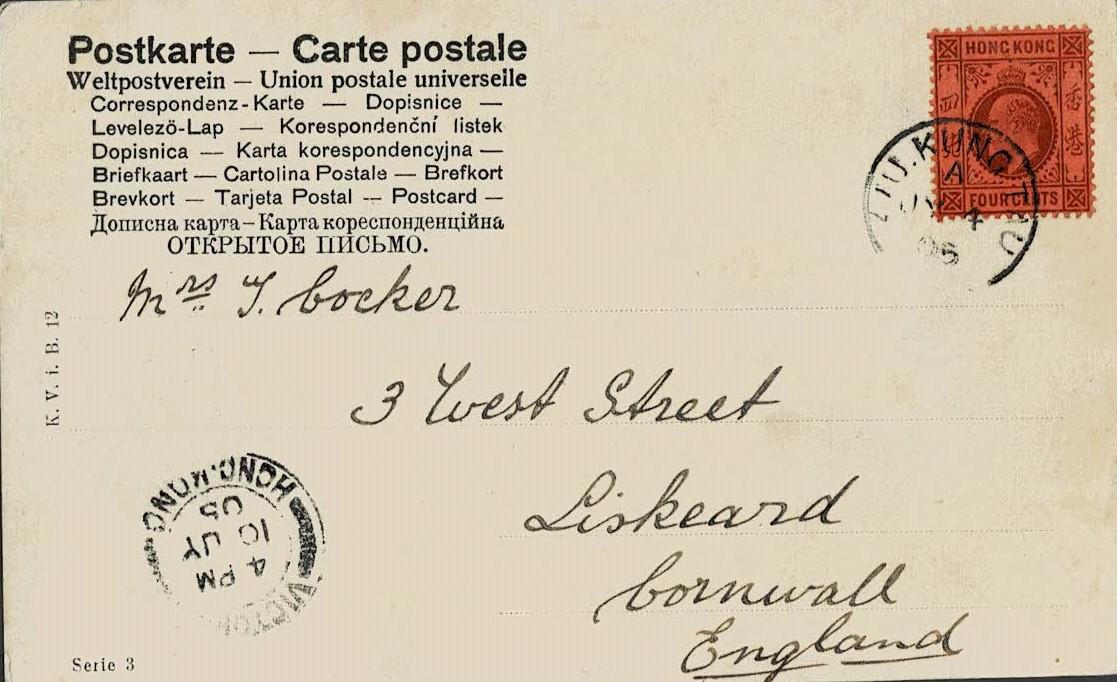 Postkarte — Carte postale
Weltpostverein — Union postale universelle
Correspondenz-Karte — Dopisnice —
Levelező-Lap — Korespondenční listek
Dopisnica — Karta korespondencyjna —
Briefkaart — Cartolina Postale — Brefkort
Brevkort — Tarjeta Postal — Postcard —
Дописна карта — Карта кореспонденційна
ОТКРЫТОЕ ПИСЬМО.
HONG KONG
四
香港
FOUR CENTS
LIU.KUNG TAU
A
JY 4
Mrs J. Cocker
3 West Street
Liskeard
Cornwall
England
K. V. i. B. 12
VICTORIA
HONG.KONG
4 PM
10 JY
05
Serie 3